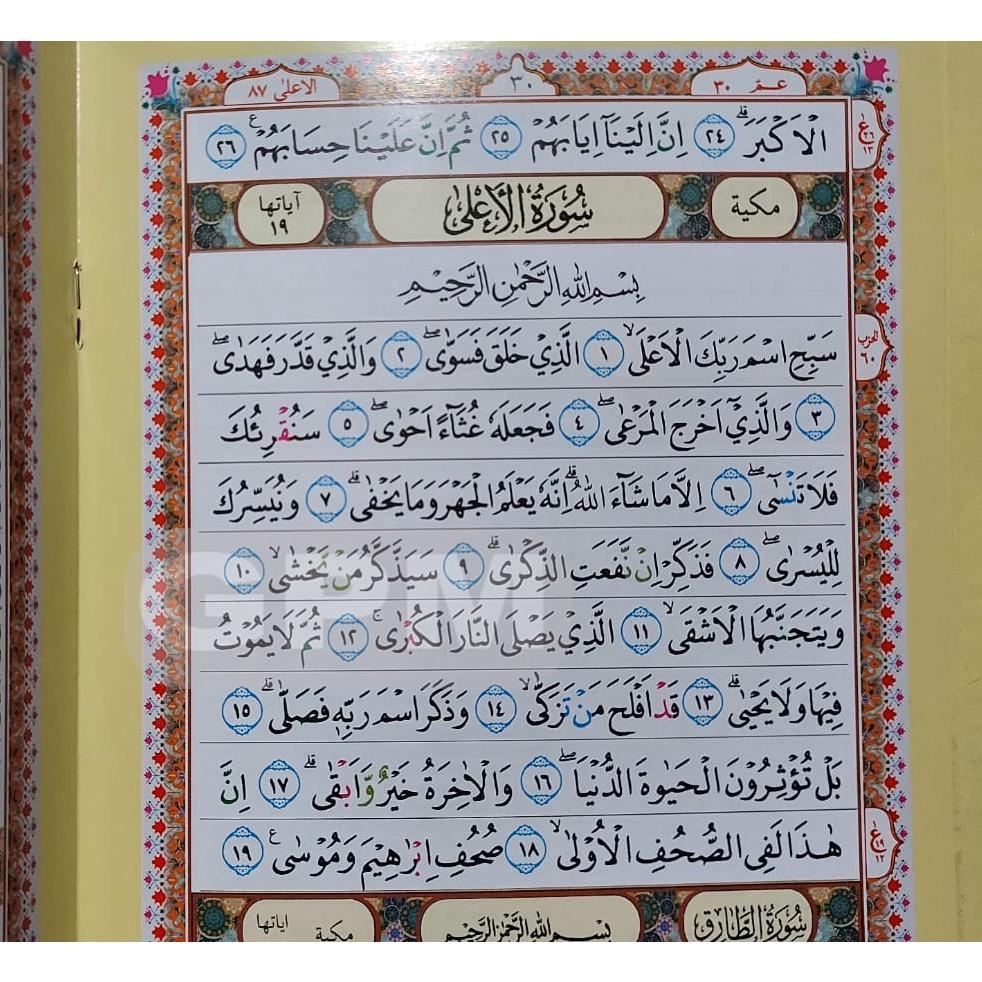 عـمّ ٣٠
٣٠
الاعلى ٨٧
الْاَكْبَرَۗ ٢٤ اِنَّ اِلَيْنَآ اِيَابَهُمْ ٢٥ ثُمَّ اِنَّ عَلَيْنَا حِسَابَهُمْ ࣖ ٢٦
مكية
سُورَةُ الْأَعْلٰى
آياتها ١٩
بِسْمِ اللهِ الرَّحْمٰنِ الرَّحِيْمِ
سَبِّحِ اسْمَ رَبِّكَ الْاَعْلَىۙ ١ الَّذِيْ خَلَقَ فَسَوّٰىۖ ٢ وَالَّذِيْ قَدَّرَ فَهَدٰىۖ
٣ وَالَّذِيْٓ اَخْرَجَ الْمَرْعٰىۖ ٤ فَجَعَلَهٗ غُثَآءً اَحْوٰىۖ ٥ سَنُقْرِئُكَ
فَلَا تَنْسٰىٓۖ ٦ اِلَّا مَا شَآءَ اللهُۗ اِنَّهٗ يَعْلَمُ الْجَهْرَ وَمَا يَخْفٰىۗ ٧ وَنُيَسِّرُكَ
لِلْيُسْرٰىۖ ٨ فَذَكِّرْ اِنْ نَّفَعَتِ الذِّكْرٰىۗ ٩ سَيَذَّكَّرُ مَنْ يَّخْشٰىۙ ١٠
وَيَتَجَنَّبُهَا الْاَشْقَىۙ ١١ الَّذِيْ يَصْلَى النَّارَ الْكُبْرٰىۚ ١٢ ثُمَّ لَا يَمُوْتُ
فِيْهَا وَلَا يَحْيٰىۗ ١٣ قَدْ اَفْلَحَ مَنْ تَزَكّٰىۙ ١٤ وَذَكَرَ اسْمَ رَبِّهٖ فَصَلّٰىۗ ١٥
بَلْ تُؤْثِرُوْنَ الْحَيٰوةَ الدُّنْيَاۖ ١٦ وَالْاٰخِرَةُ خَيْرٌ وَّاَبْقٰىۗ ١٧ اِنَّ
هٰذَا لَفِى الصُّحُفِ الْاُوْلٰىۙ ١٨ صُحُفِ اِبْرٰهِيْمَ وَمُوْسٰى ࣖ ١٩
سُورَةُ الطَّارِقِ
بِسْمِ اللهِ الرَّحْمٰنِ الرَّحِيْمِ
مكية
اياتها
الحزب ٦٠
GPM